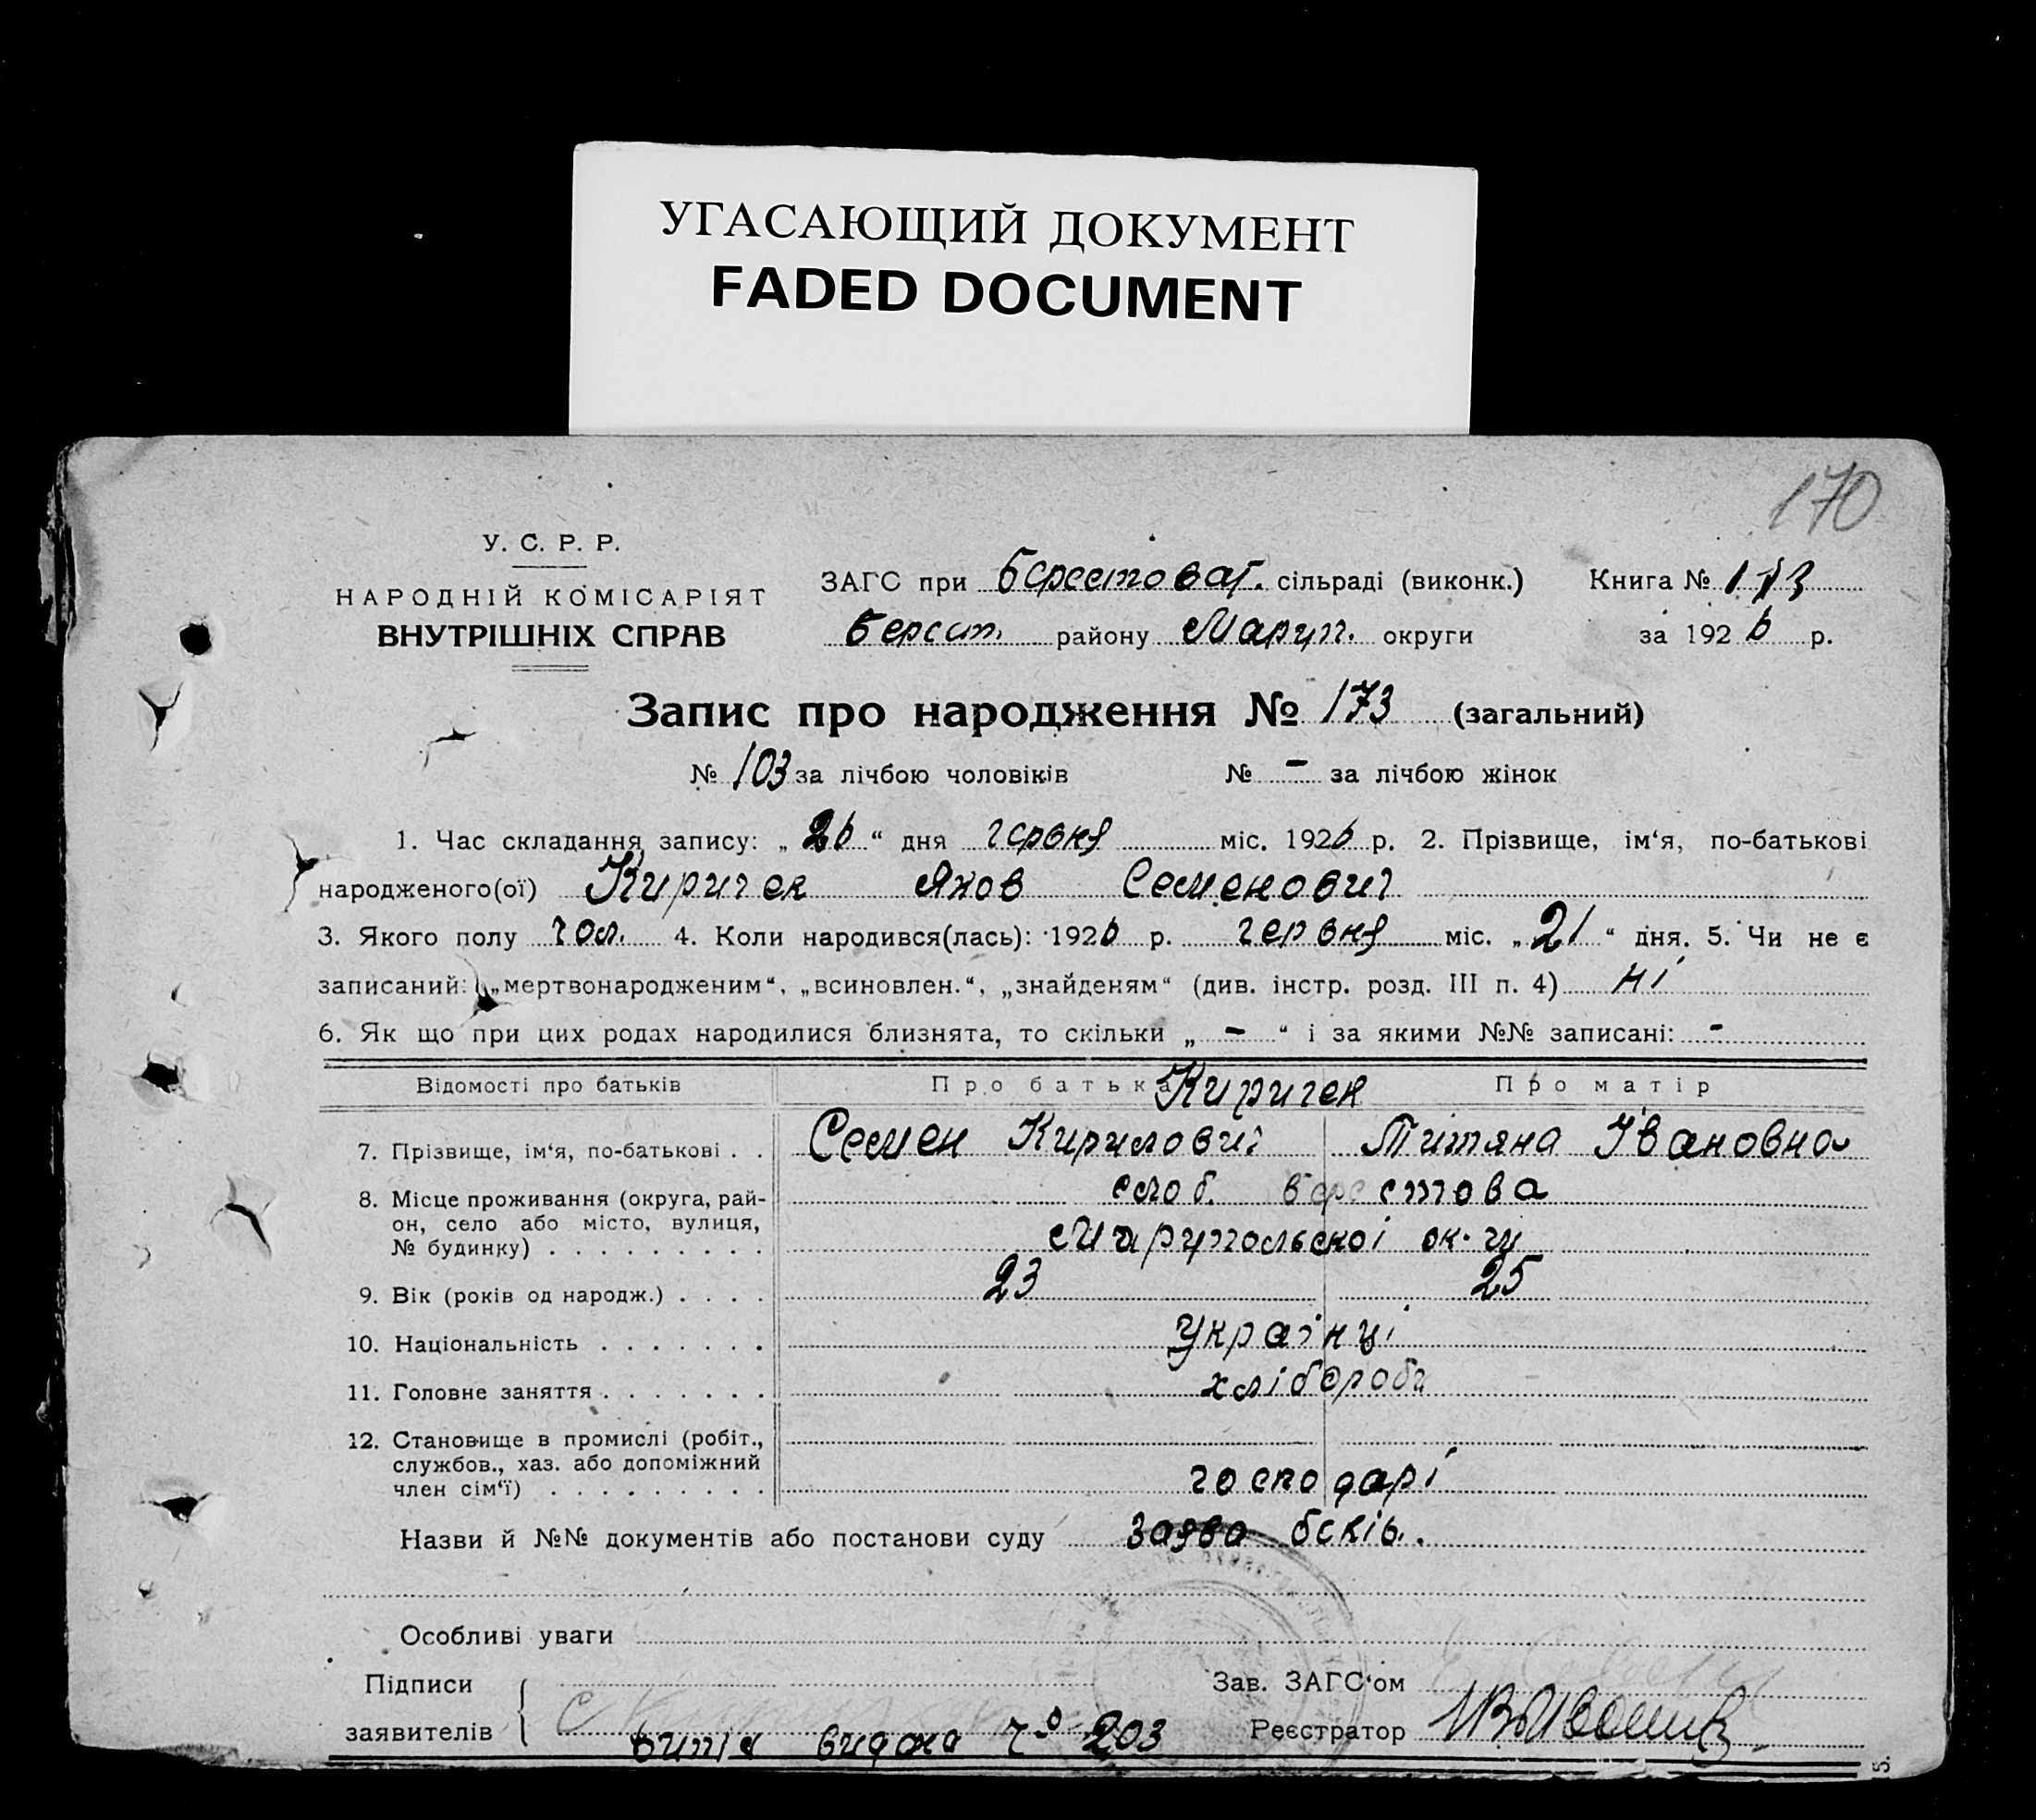 УГАСАЮЩИЙ ДОКУМЕНТ
FADED DOCUMENT
170
У. С. Р. Р.
НАРОДНІЙ КОМІСАРІЯТ
ВНУТРІШНІХ СПРАВ
ЗАГС при Берестоват. сільраді (виконк.) Книга № 173
Берест. району Маріуп. округи за 1926 р.
Запис про народження № 173 (загальний)
№ 103 за лічбою чоловіків № - за лічбою жінок
1. Час складання запису: „26“ дня червня міс. 1926 р. 2. Прізвище, ім‘я, по-батькові
народженого(ої) Киричек Яков Семенович
3. Якого полу чол. 4. Коли народився(лась): 1926 р. червня міс. „21“ дня. 5. Чи не є
записаний: „мертвонародженим“, „всиновлен.“, „знайденям“ (див. інстр. розд. III п. 4) ні
6. Як що при цих родах народилися близнята, то скільки „-“ і за якими №№ записані: -
Відомості про батьків Про батька Про матір
Киричек
7. Прізвище, ім‘я, по-батькові . . Семен Кирилович Титяна Івановна
8. Місце проживання (округа, рай-
он, село або місто, вулиця,
№ будинку) . . . . . . . . .
слоб. Берестова
Маріупольскоі ок-ги
9. Вік (років од народж.) . . . . 23 25
10. Національність . . . . . . . Украінці
11. Головне заняття . . . . . . . хлібороби
12. Становище в промислі (робіт.,
службов., хаз. або допоміжний
член сім‘ї) . . . . . . . . . господарі
Назви й №№ документів або постанови суду заява
Особливі уваги
Підписи
заявителів
Зав. ЗАГС‘ом
Реєстратор
видана № 203
5.